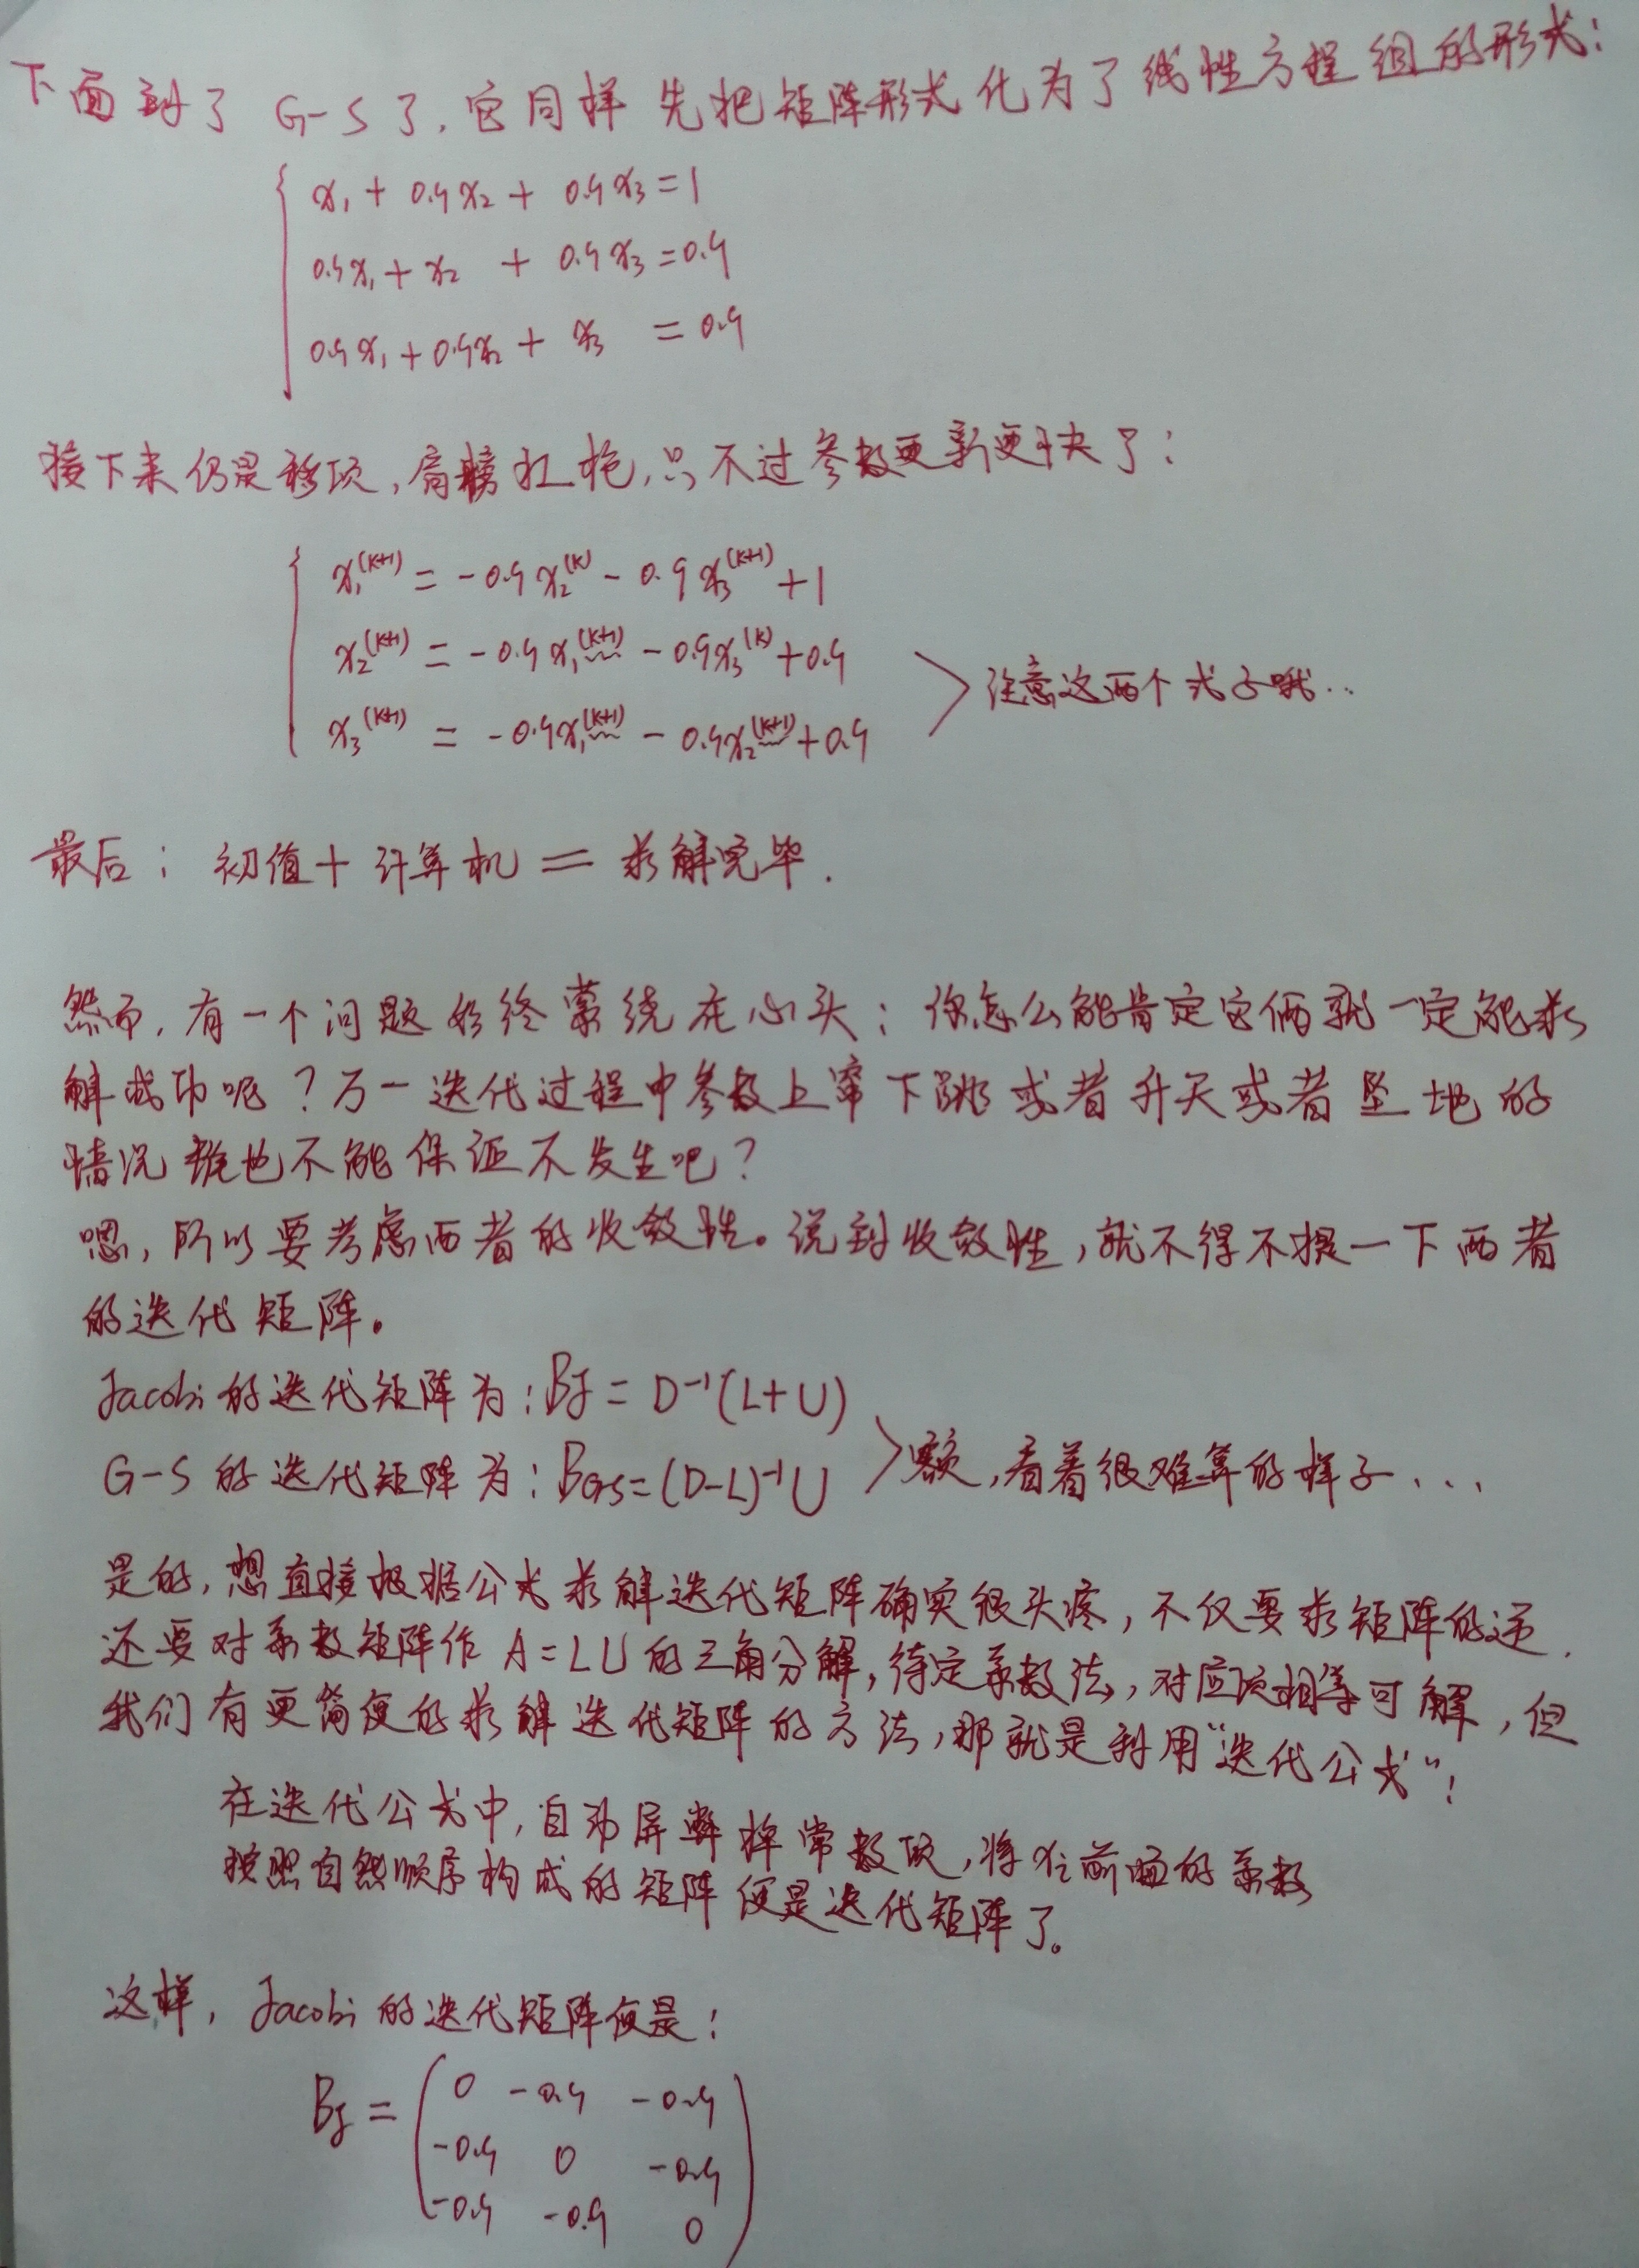 下面到了 G-S 了,它同样先把矩阵形式化为了线性方程组的形式:
x₁ + 0.4x₂ + 0.4x₃ = 1
0.4x₁ + x₂ + 0.4x₃ = 0.4
0.4x₁ + 0.4x₂ + x₃ = 0.4
接下来仍是移项,肩膀扛枪,只不过参数更新更快了:
x₁^(k+1) = -0.4x₂^(k) - 0.9x₃^(k+1) + 1
x₂^(k+1) = -0.4x₁^(k+1) - 0.9x₃^(k) + 0.4
x₃^(k+1) = -0.4x₁^(k+1) - 0.4x₂^(k+1) + 0.4
注意这两个式子哦..
最后:初值+计算机=求解完毕.
然而,有一个问题始终萦绕在心头:你怎么能肯定它俩就一定能求
解成功呢?万一迭代过程中参数上窜下跳或者升天或者坠地的
情况谁也不能保证不发生吧?
嗯,所以要考虑两者的收敛性。说到收敛性,就不得不提一下两者
的迭代矩阵。
Jacobi的迭代矩阵为:BJ = D⁻¹(L+U)
G-S的迭代矩阵为:BGS=(D-L)⁻¹U
额,看着很难算的样子...
是的,想直接根据公式求解迭代矩阵确实很头疼,不仅要求矩阵的逆,
还要对系数矩阵作 A=LU的三角分解,待定系数法,对应项相等可解,但
我们有更简便的求解迭代矩阵的方法,那就是利用“迭代公式”!
在迭代公式中,自动屏蔽掉常数项,将xᵢ前面的系数
按照自然顺序构成的矩阵便是迭代矩阵了。
这样,Jacobi的迭代矩阵便是:
BJ = 0 -0.4 -0.4
-0.4 0 -0.4
-0.4 -0.9 0